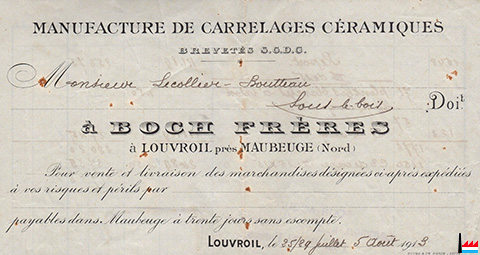 MANUFACTURE DE CARRELAGES CÉRAMIQUES
BREVETÉS S.G.D.G.
Monsieur Lecollier-Boutteau
Sous-le-bois
Doit
à BOCH FRÈRES
à LOUVROIL près MAUBEUGE (Nord)
Pour vente et livraison des marchandises désignées ci-après expédiées
à vos risques et périls par
payables dans Maubeuge à trente jours sans escompte.
LOUVROIL, le 25/29 juillet 5 Août 1913